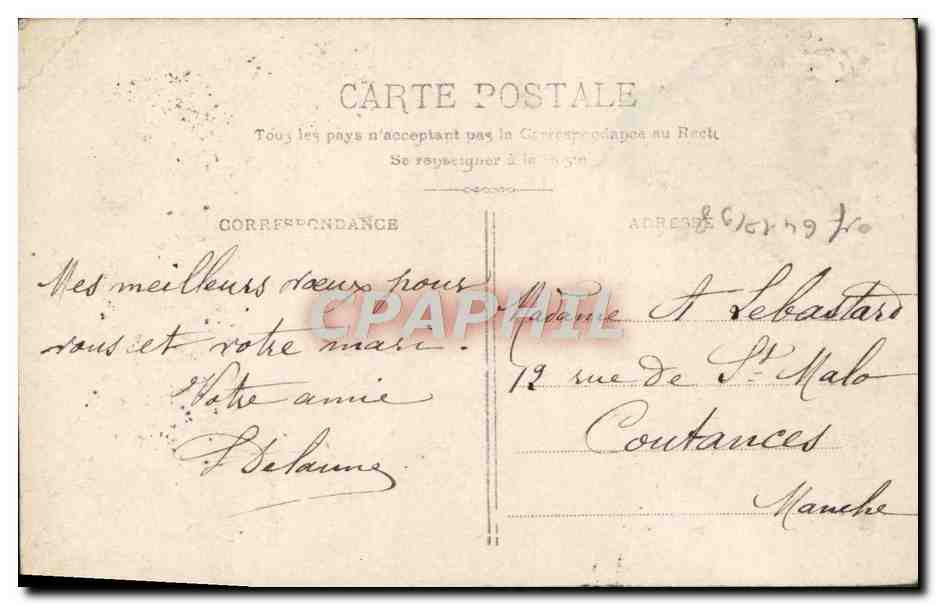 CARTE POSTALE
Tous les pays n'acceptant pas la Correspondance au Recto
Se renseigner à la Poste
CORRESPONDANCE
ADRESSE
Mes meilleurs vœux pour
vous et votre mari.
Votre amie
Delaune
Madame A Lebastard
12 rue de St Malo
Coutances
Manche
CPAPHIL